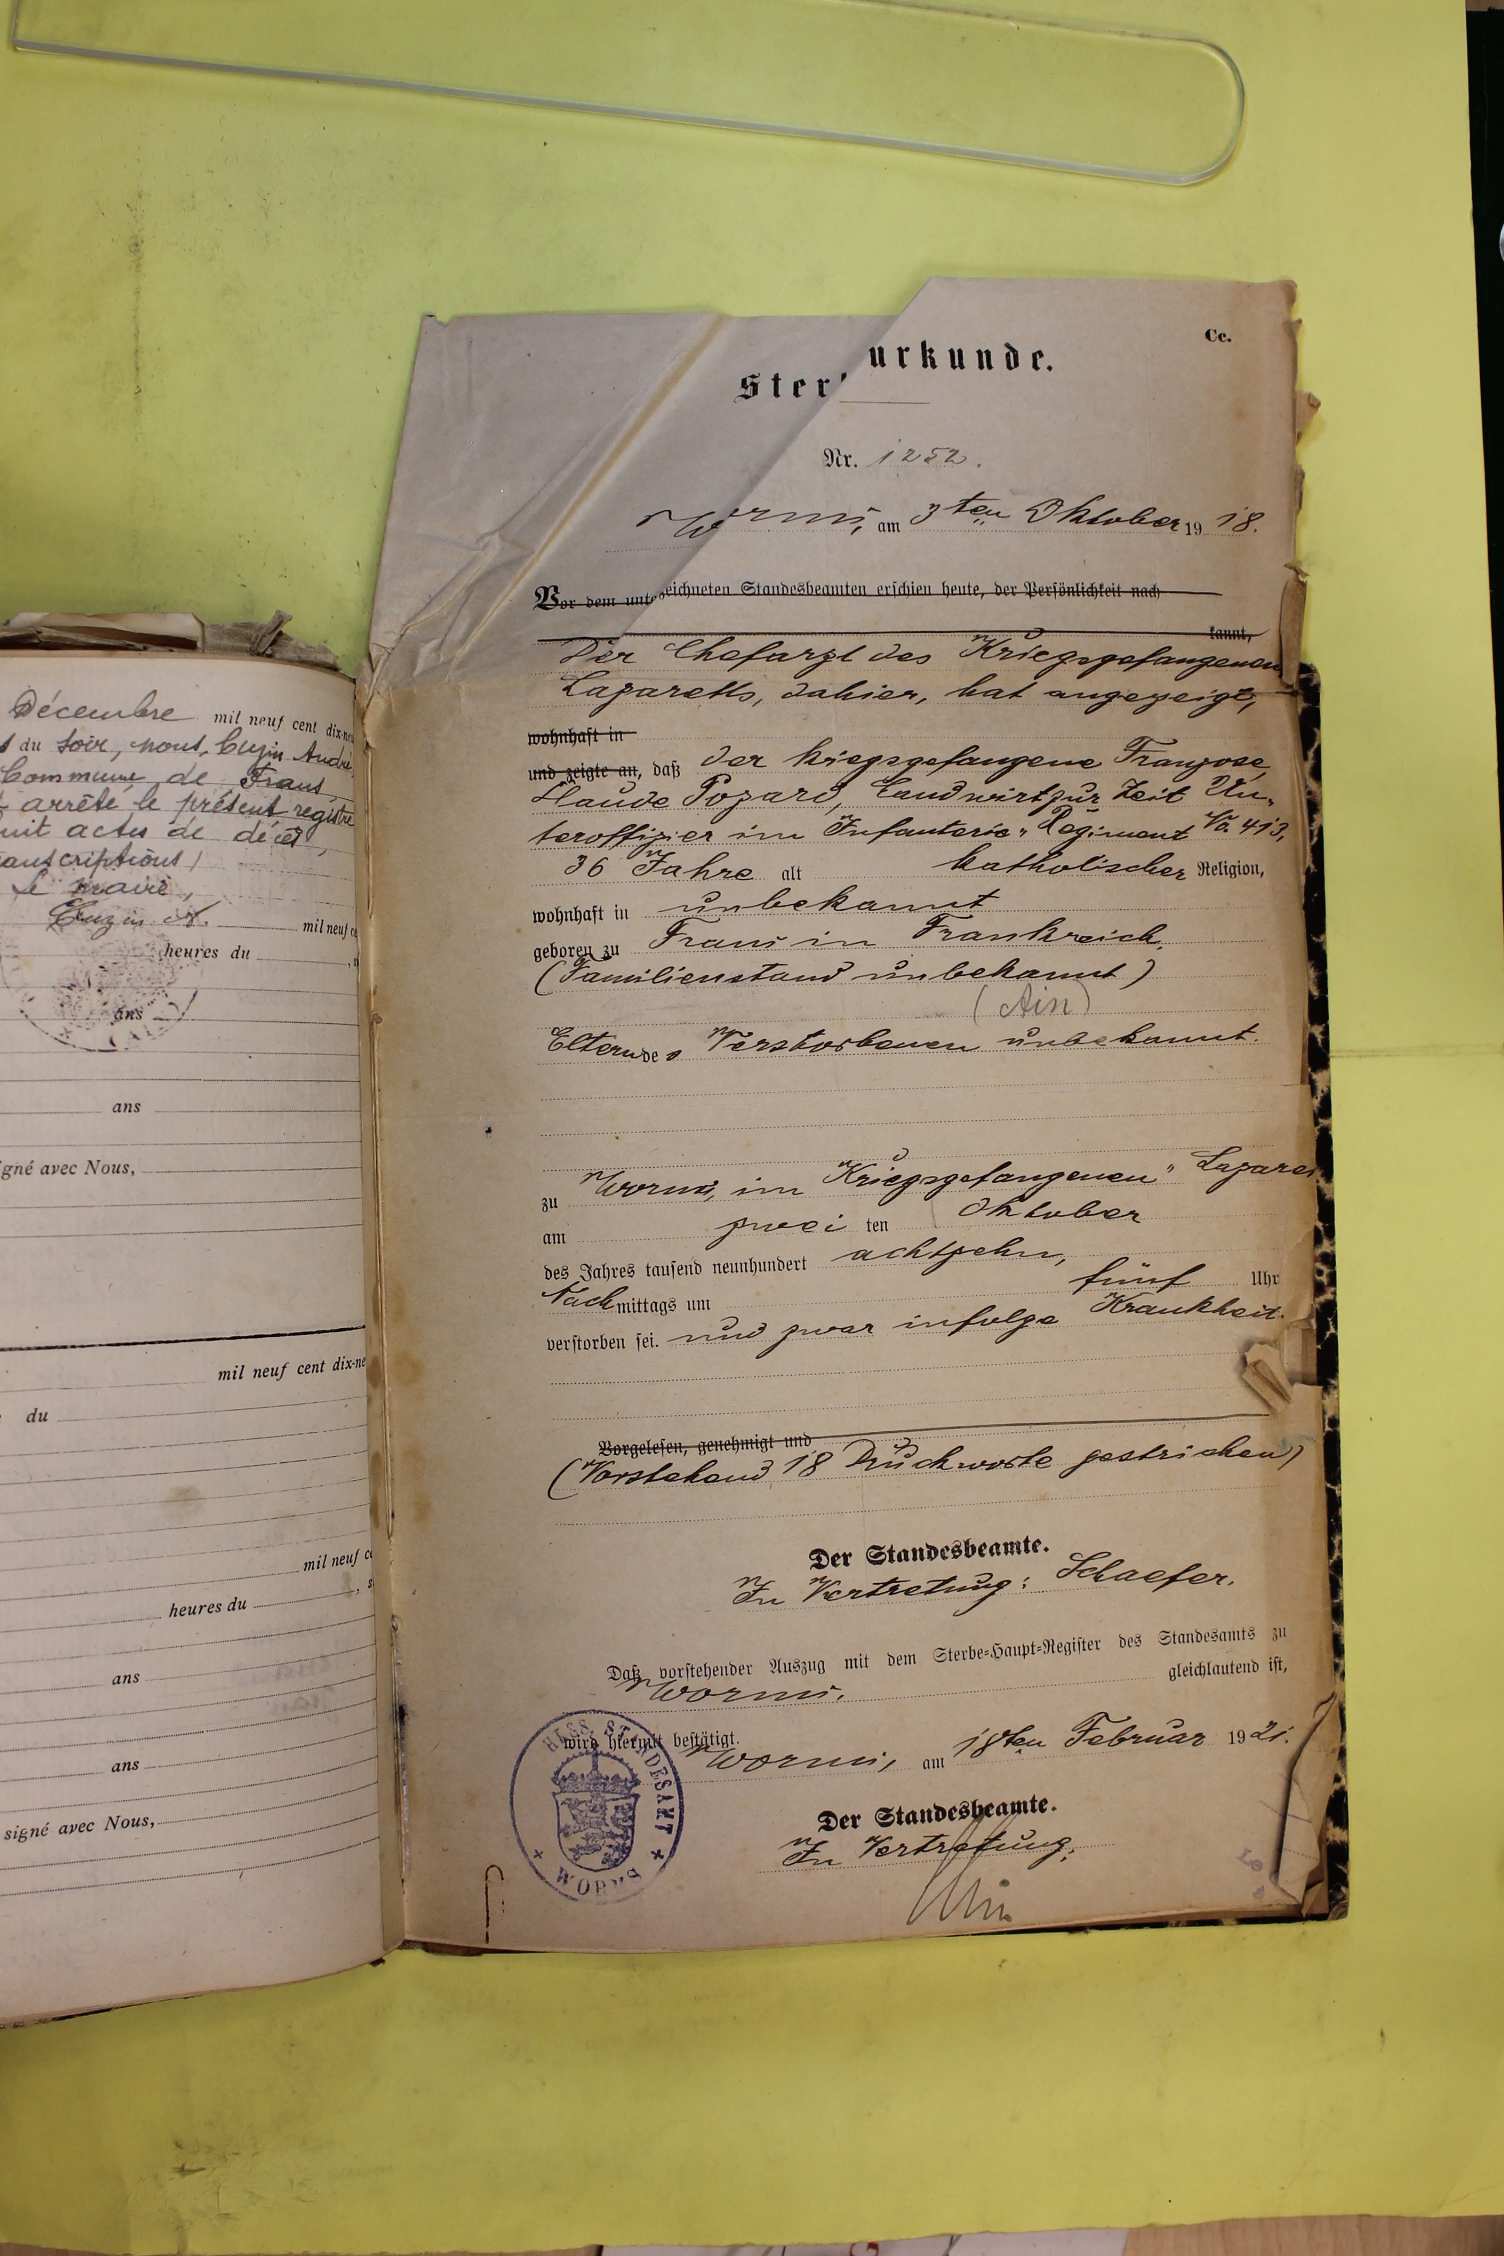 Décembre mil neuf cent dix-neu
du soir, nous, Cuzin André,
Commune de Frans
arrêté le présent registre
uit actes de décès,
anscriptions)
Le maire,
Cuzin A.
mil neuf c
heures du
ans
ans
igné avec Nous,
mil neuf cent dix-ne
du
mil neuf c
heures du
ans
ans
signé avec Nous,
Cc.
Ster urkunde.
Nr. 1252.
Worms, am 3ten Oktober 19 18.
Vor dem unterzeichneten Standesbeamten erschien heute, der Persönlichkeit nach
kannt,
Der Chefarzt des Kriegsgefangenen
Lazaretts, dahier, hat angezeigt,
wohnhaft in
und zeigte an, daß der kriegsgefangene Franzose,
Claude Pozard, Landwirt, zur Zeit Un-
teroffizier im Infanterie-Regiment No. 413,
36 Jahre alt katholischer Religion,
wohnhaft in unbekannt
geboren zu Frans in Frankreich.
(Familienstand unbekannt)
(Ain)
Eltern des Verstorbenen unbekannt.
zu Worms, im Kriegsgefangenen-Lazaret
am zwei ten Oktober
des Jahres tausend neunhundert achtzehn,
Nachmittags um fünf Uhr
verstorben sei. und zwar infolge Krankheit.
Vorgelesen, genehmigt und
(Vorstehend 18 Druckworte gestrichen)
Der Standesbeamte.
In Vertretung: Schaefer.
Daß vorstehender Auszug mit dem Sterbe-Haupt-Register des Standesamts zu
Worms. gleichlautend ist,
wird hiermit bestätigt.
Worms, am 18ten Februar 1921.
Der Standesbeamte.
In Vertretung:
HESS. STANDESAMT
+ WORMS +